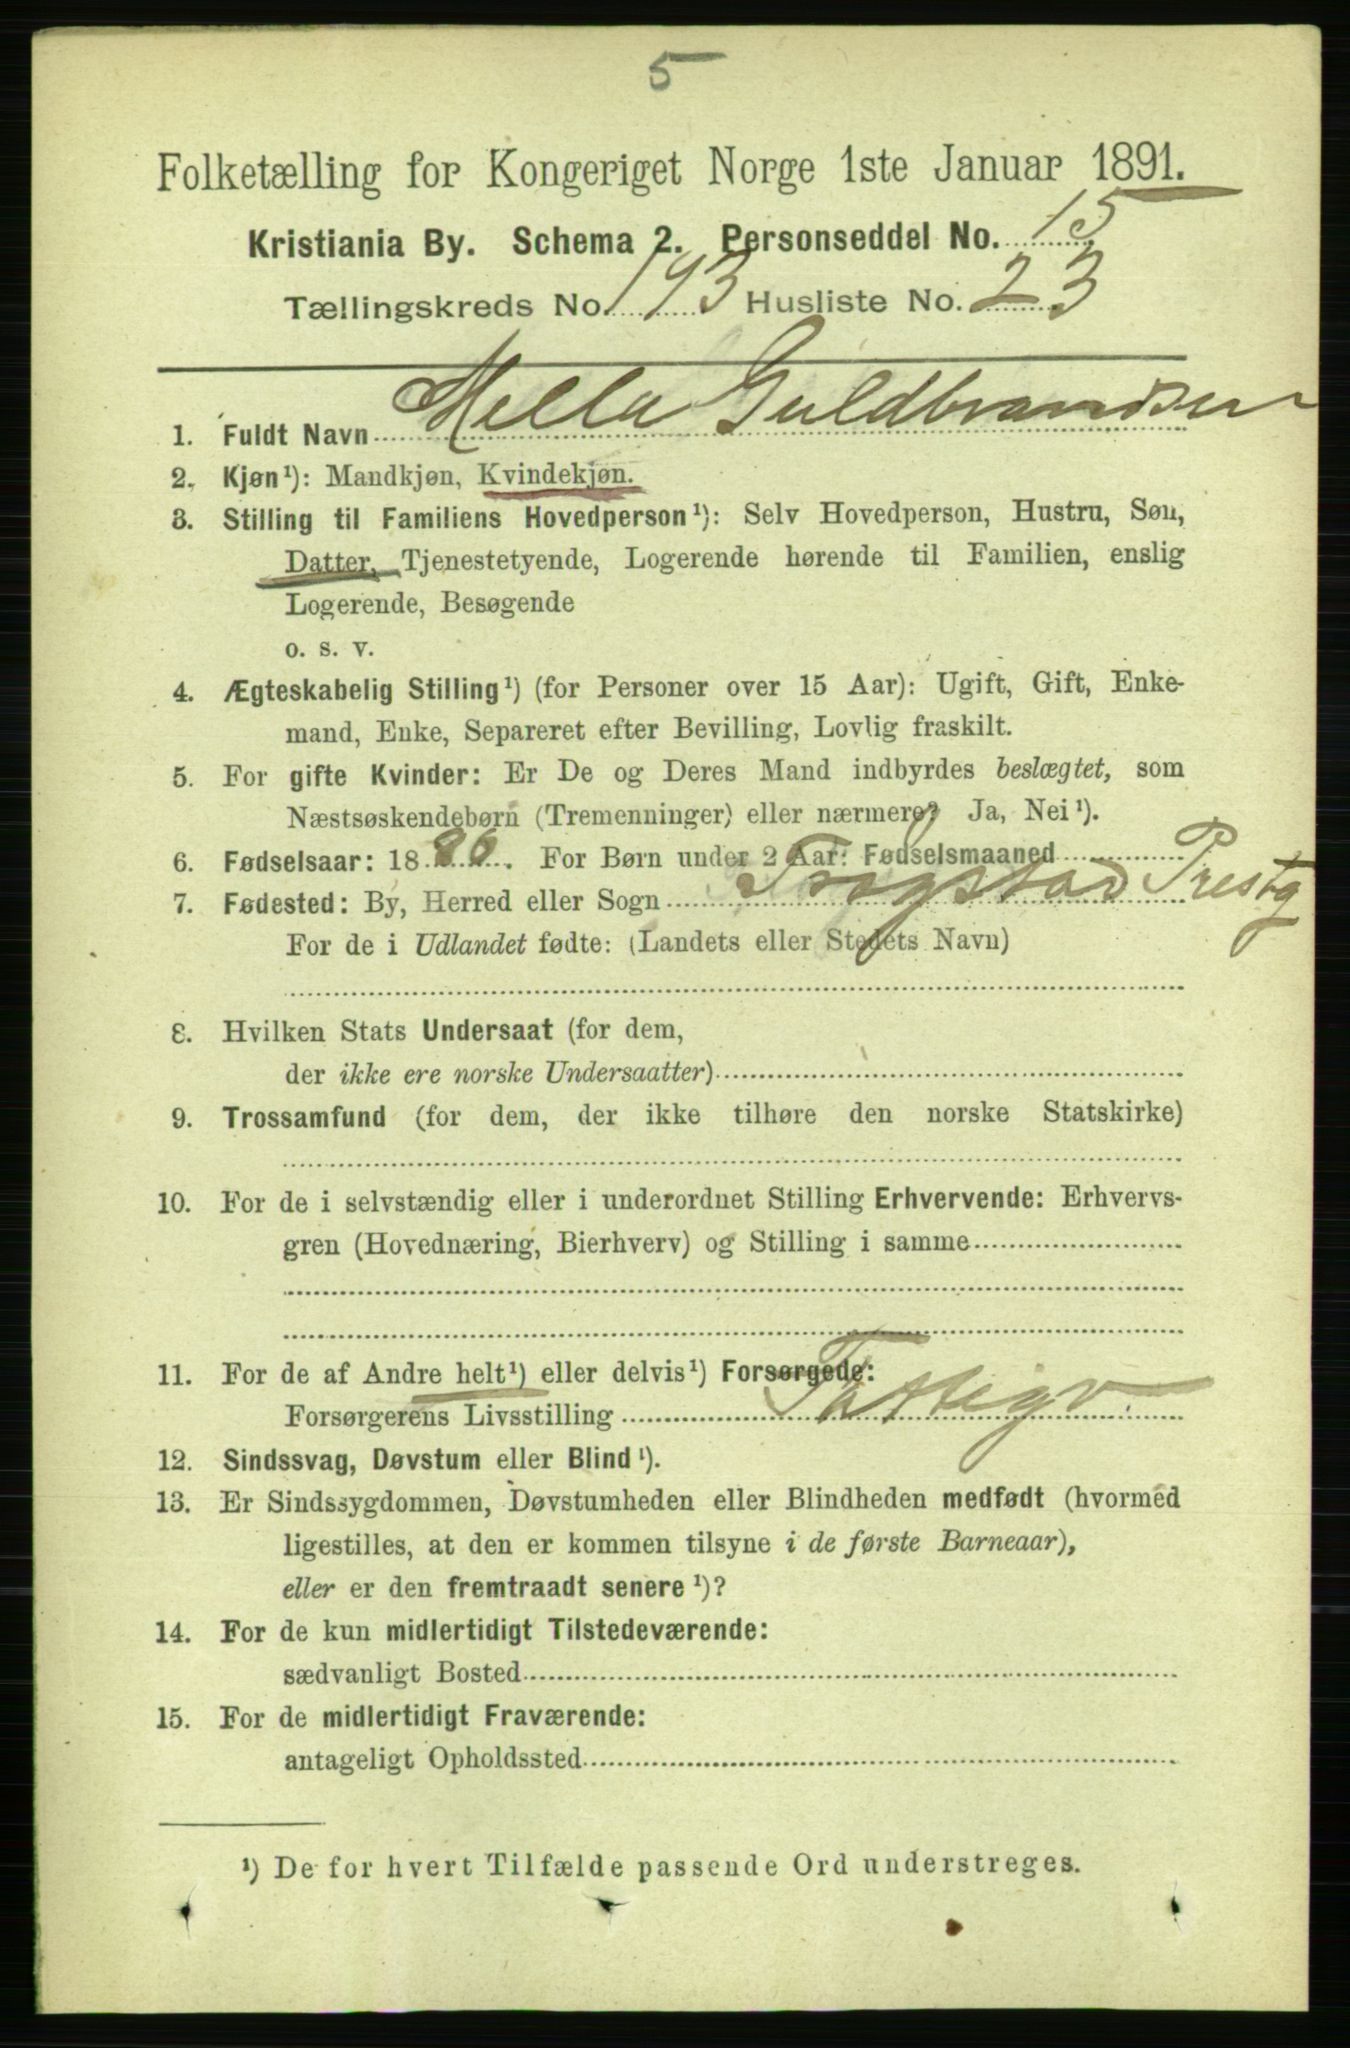 5
Folketælling for Kongeriget Norge 1ste Januar 1891.
Kristiania By. Schema 2. Personseddel No. 15
Tællingskreds No. 193 Husliste No. 23
1. Fuldt Navn Mella Guldbrandsen
2. Kjøn¹): Mandkjøn, Kvindekjøn.
3. Stilling til Familiens Hovedperson¹): Selv Hovedperson, Hustru, Søn,
Datter, Tjenestetyende, Logerende hørende til Familien, enslig
Logerende, Besøgende
o. s. v.
4. Ægteskabelig Stilling¹) (for Personer over 15 Aar): Ugift, Gift, Enke-
mand, Enke, Separeret efter Bevilling, Lovlig fraskilt.
5. For gifte Kvinder: Er De og Deres Mand indbyrdes beslægtet, som
Næstsøskendebørn (Tremenninger) eller nærmere? Ja, Nei¹).
6. Fødselsaar: 1886. For Børn under 2 Aar: Fødselsmaaned
7. Fødested: By, Herred eller Sogn Trøgstad Prestg
For de i Udlandet fødte: (Landets eller Stedets Navn)
8. Hvilken Stats Undersaat (for dem,
der ikke ere norske Undersaatter)
9. Trossamfund (for dem, der ikke tilhøre den norske Statskirke)
10. For de i selvstændig eller i underordnet Stilling Erhvervende: Erhvervs-
gren (Hovednæring, Bierhverv) og Stilling i samme
11. For de af Andre helt¹) eller delvis¹) Forsørgede:
Forsørgerens Livsstilling Fattigv
12. Sindssvag, Døvstum eller Blind¹).
13. Er Sindssygdommen, Døvstumheden eller Blindheden medfødt (hvormed
ligestilles, at den er kommen tilsyne i de første Barneaar),
eller er den fremtraadt senere¹)?
14. For de kun midlertidigt Tilstedeværende:
sædvanligt Bosted
15. For de midlertidigt Fraværende:
antageligt Opholdssted
¹) De for hvert Tilfælde passende Ord understreges.